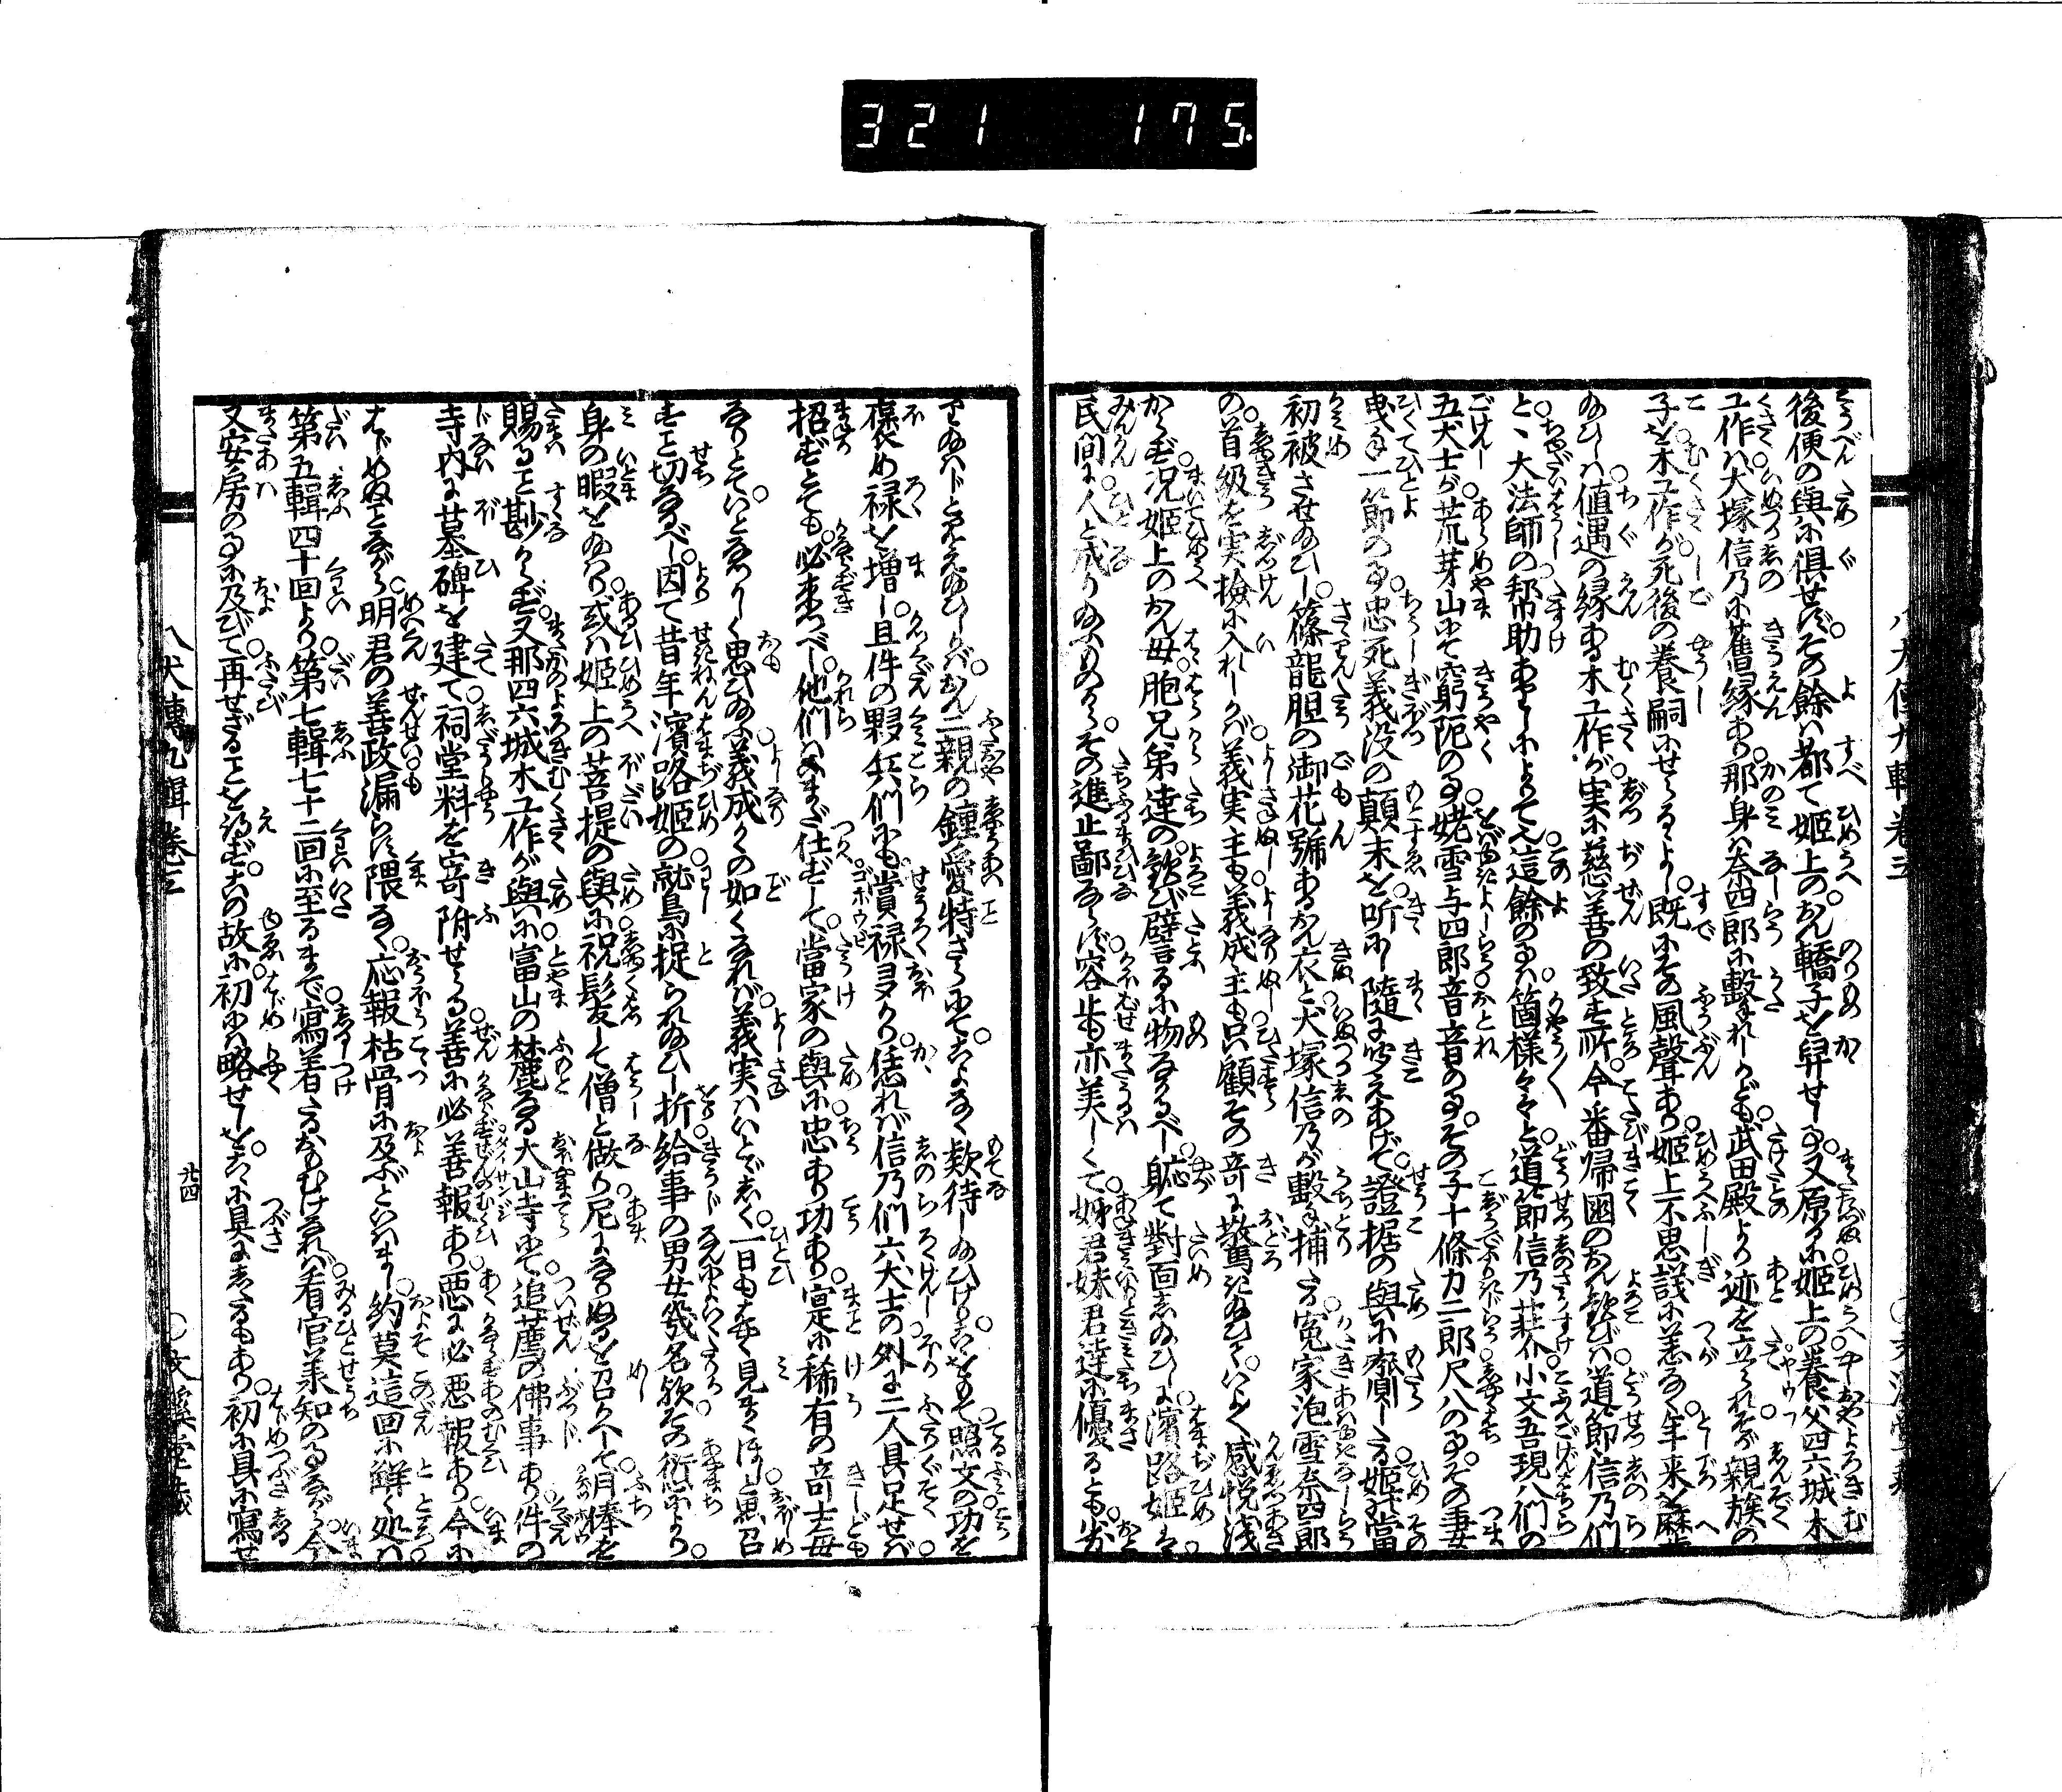 321 175
後便の與に倶せず。その餘は都て姫上のおん轎子を舁せしなり。又原るに姫上の養父四六城木
工作は犬塚信乃に舊縁あり。那身は奈四郎に撃れしかども。武田殿より迹を立られ。その親族の
子を木工作が死後の養嗣にせらるゝよし。既にその風聲あり。姫上不思議に恙なく。年来を歴
給ひしは値遇の縁ある木工作が。実に慈善の致す所。今番帰國のおん歓びは。道節信乃們
と、大法師の幇助ありしによりてなり。這餘の事は箇様々々と。道節信乃荘介小文吾現八們の
五犬士が荒芽山にて窮阨の事。姥雪与四郎音音の事。その子十條力二郎尺八の事。その妻
曳手一節の事。忠死義没の顛末を听にし隨に聞えあげて。證据の與に齎したる。姫の當
初被させ給ひし。篠龍胆の御花號あるおん衣と。犬塚信乃が撃捕たる。寃家泡雪奈四郎
の。首級を実檢に入れしかば。義実主も義成主も。只顧その奇に驚き給ひて。いよゝ感悦浅
からず。况姫上のおん母。胞兄弟達の。歓び譬るに物なかるべし。軈て對面し給ひしに。濱路姫は。
民間に人と成り給ふものから。その進止鄙ならず。容止も亦美しくて。姉君妹君達に優るとも劣
させ給はじと見え給ひしかば。おん二親の鍾愛特さらにて。こよなく欵待し給ひけり。これをもて照文の功を
褒め禄を増し。且件の夥兵們にも。賞禄ヌかり。恁れば信乃們六犬士の外に二人具足せば
招ずとても。必来つべし。他們はいまだ仕ずして。當家の與に忠あり功あり。寔に稀有の竒士毎
なりとて。いとなつかしく思ひ給ふ。義成かくの如くなれば。義実はいとゞしく。一日もはやく見まくほしと思召
すこと切なるべし。因て昔年濱路姫の。就鳥に捉られ給ひし折。給事の男女幾名歟。その術により
身の暇を給はり。或は姫上の菩提の與に。祝髪して僧と做り。尼になりぬるを召かへして。月俸を
賜ること尠からず。又那四六城木工作が與に。富山の麓なる大山寺にて。追薦の佛事あり。件の
寺内に墓碑を建て。祠堂料を寄附せらる。善に必善報あり。惡に必惡報あり。今に
はじめぬことながら。明君の善政漏らす隈なく。応報枯骨に及ぶといはまし。約莫這回に鮮く処は
第五輯四十回より。第七輯七十二回に至るまで。寫着たるおもむけなれば。看官兼知の事ながら。今
又安房の事に及びて。再せざることを得ず。この故に初には略せしを。こゝに具にしたるもあり。初に具に寫せ
八犬傳九輯卷三
廿四
文溪堂藏